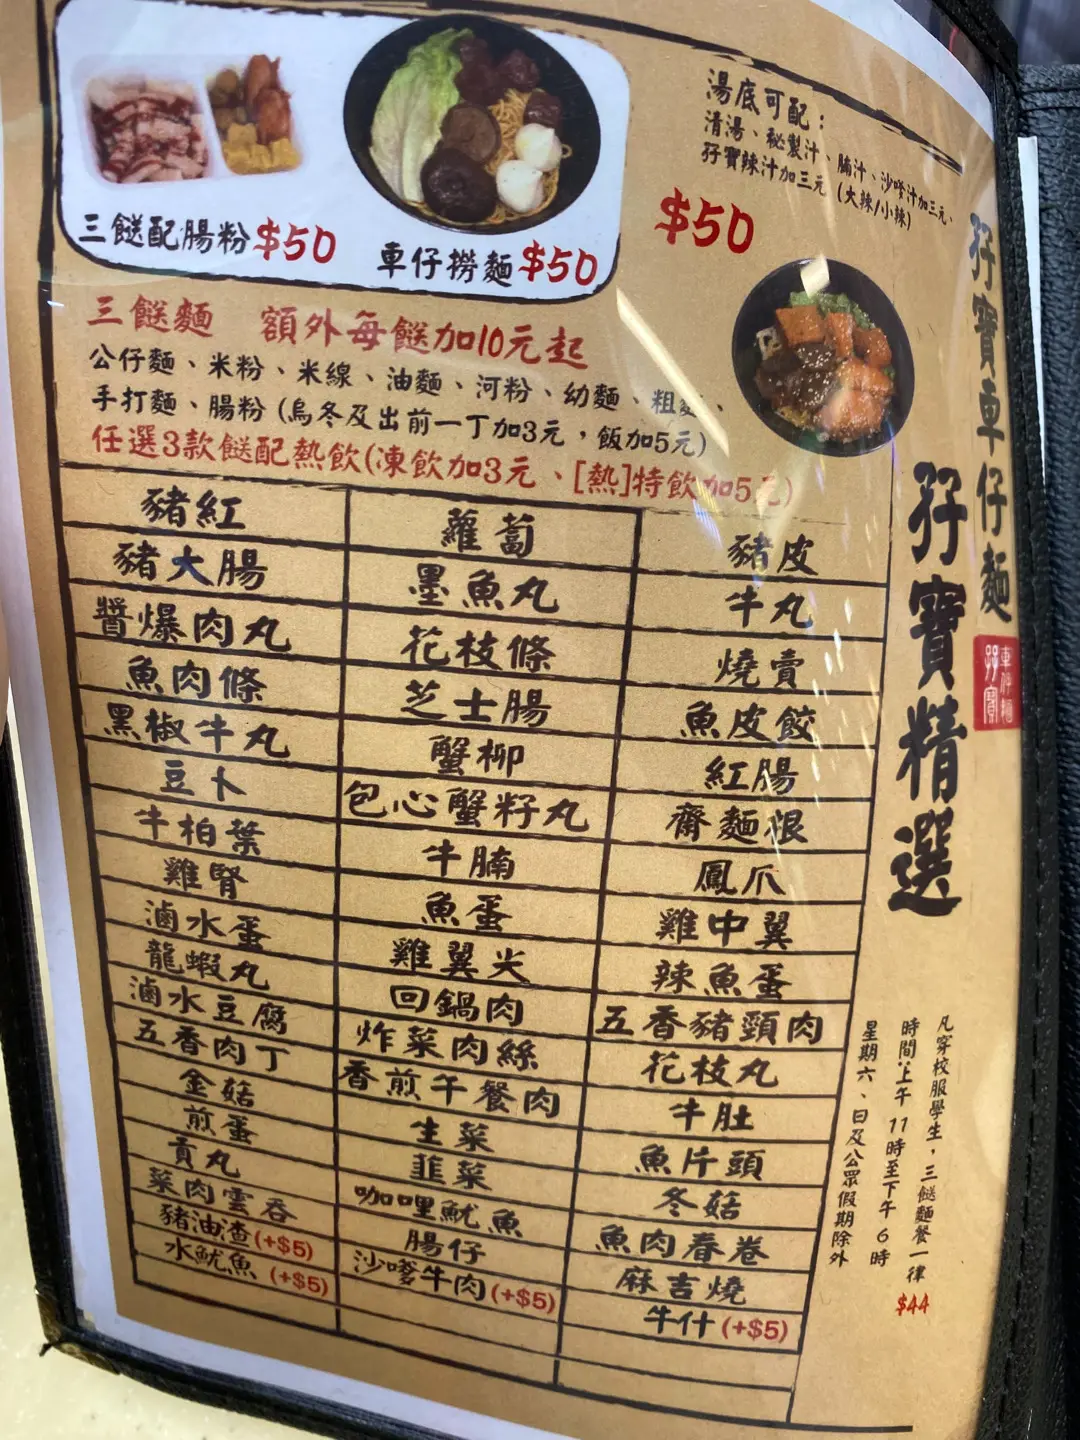 湯底可配：
清湯、秘製汁、腩汁、沙嗲汁加三元、
孖寶辣汁加三元 (大辣/小辣)
$50
三餸配腸粉$50
車仔撈麵$50
三餸麵　額外每餸加10元起
公仔麵、米粉、米線、油麵、河粉、幼麵、粗麵、
手打麵、腸粉 (烏冬及出前一丁加3元，飯加5元)
任選3款餸配熱飲(凍飲加3元、[熱]特飲加5元)
豬紅 蘿蔔 豬皮
豬大腸 墨魚丸 牛丸
醬爆肉丸 花枝條 燒賣
魚肉條 芝士腸 魚皮餃
黑椒牛丸 蟹柳 紅腸
豆卜 包心蟹籽丸 齋麵根
牛柏葉 牛腩 鳳爪
雞腎 魚蛋 雞中翼
滷水蛋 雞翼尖 辣魚蛋
龍蝦丸 回鍋肉 五香豬頸肉
滷水豆腐 炸菜肉絲 花枝丸
五香肉丁 香煎午餐肉 牛肚
金菇 生菜 魚片頭
煎蛋 韮菜 冬菇
貢丸 咖哩魷魚 魚肉春卷
菜肉雲吞 腸仔 麻吉燒
豬油渣(+$5) 沙嗲牛肉(+$5) 牛什(+$5)
水魷魚 (+$5)
孖寶車仔麵
孖寶精選
車仔麵
孖寶
凡穿校服學生，三餸麵餐一律$44
時間：上午11時至下午6時
星期六、日及公眾假期除外